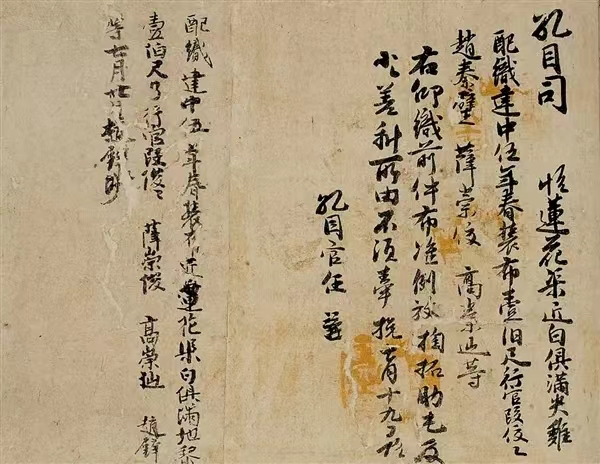 孔目司　帖蓮花渠匠白俱滿失雞
配織建中伍年春裝布壹伯尺行官段俊々
趙秦璧薛崇俊高崇迅等
右仰織前件布准例放掏拓助屯及
小々差科所由不須牽挽七月十九日帖
孔目官任
配織建中伍年春裝布匠蓮花渠白俱滿地黎
壹伯尺了行官段俊々薛崇俊高崇迅趙
等七月廿日趙璧抄